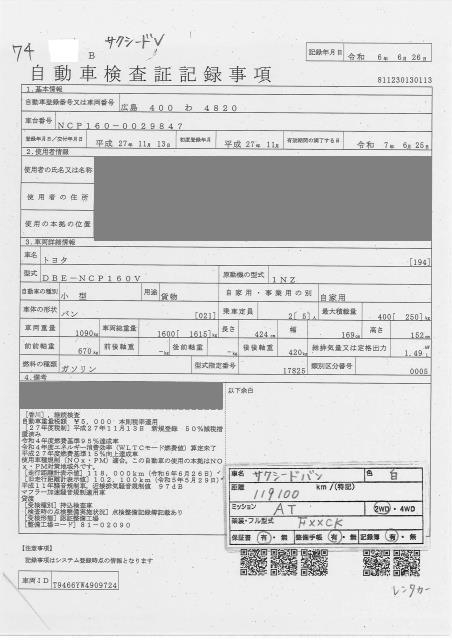 74 B サクシードV
記録年月日 令和 6年 6月26日
自動車検査証記録事項 811230130113
1.基本情報
自動車登録番号又は車両番号 広島 400 わ 4820
車台番号 NCP160-0029847
登録年月日/交付年月日 平成 27年 11月 13日 初度登録年月 平成 27年 11月 有効期間の満了する日 令和 7年 6月 25日
2.使用者情報
使用者の氏名又は名称
使用者の住所
使用の本拠の位置
3.車両詳細情報
車名 トヨタ [194]
型式 DBE-NCP160V 原動機の型式 1NZ
自動車の種別 小型 用途 貨物 自家用・事業用の別 自家用
車体の形状 バン [021] 乗車定員 2[ 5]人 最大積載量 400[ 250]kg
車両重量 1090kg 車両総重量 1600[ 1615]kg 長さ 424cm 幅 169cm 高さ 152cm
前前軸重 670kg 前後軸重 -kg 後前軸重 -kg 後後軸重 420kg 総排気量又は定格出力 1.49
燃料の種類 ガソリン 型式指定番号 17825 類別区分番号 0005
4.備考
以下余白
[香川],継続検査
自動車重量税額 ¥5,000 本則税率適用
[27年度税制]平成27年11月13日 新規登録 50%減税措
置済み
令和4年度燃費基準95%達成車
令和4年度エネルギー消費効率(WLTCモード燃費値)算定未了
平成27年度燃費基準15%向上達成車
使用車種規制(NOx・PM)適合。この自動車の使用の本拠はNO
x・PM対策地域外です。
[走行距離計表示値]118,000km(令和6年6月26日)
[旧走行距離計表示値]102,100km(令和5年5月29日)
平成11年騒音規制車,近接排気騒音規制値 974B
マフラー加速騒音規制適用車
貸渡
[受検種別]持込検査車
[検査時の点検整備実施状況]点検整備記録簿記載あり
[受検形態]認証整備工場
[整備工場コード]81-02090
車名 サクシードバン 色 白
距離 119100 km/(特記)
ミッション AT 2WD・4WD
装備・フル型式 FXXCK
保証書 有・無 整備手帳 有・無 記録簿 有・無
[注意事項]
記録事項はシステム登録時点の情報となります
車両ID T9466YW4909724
レンタカー